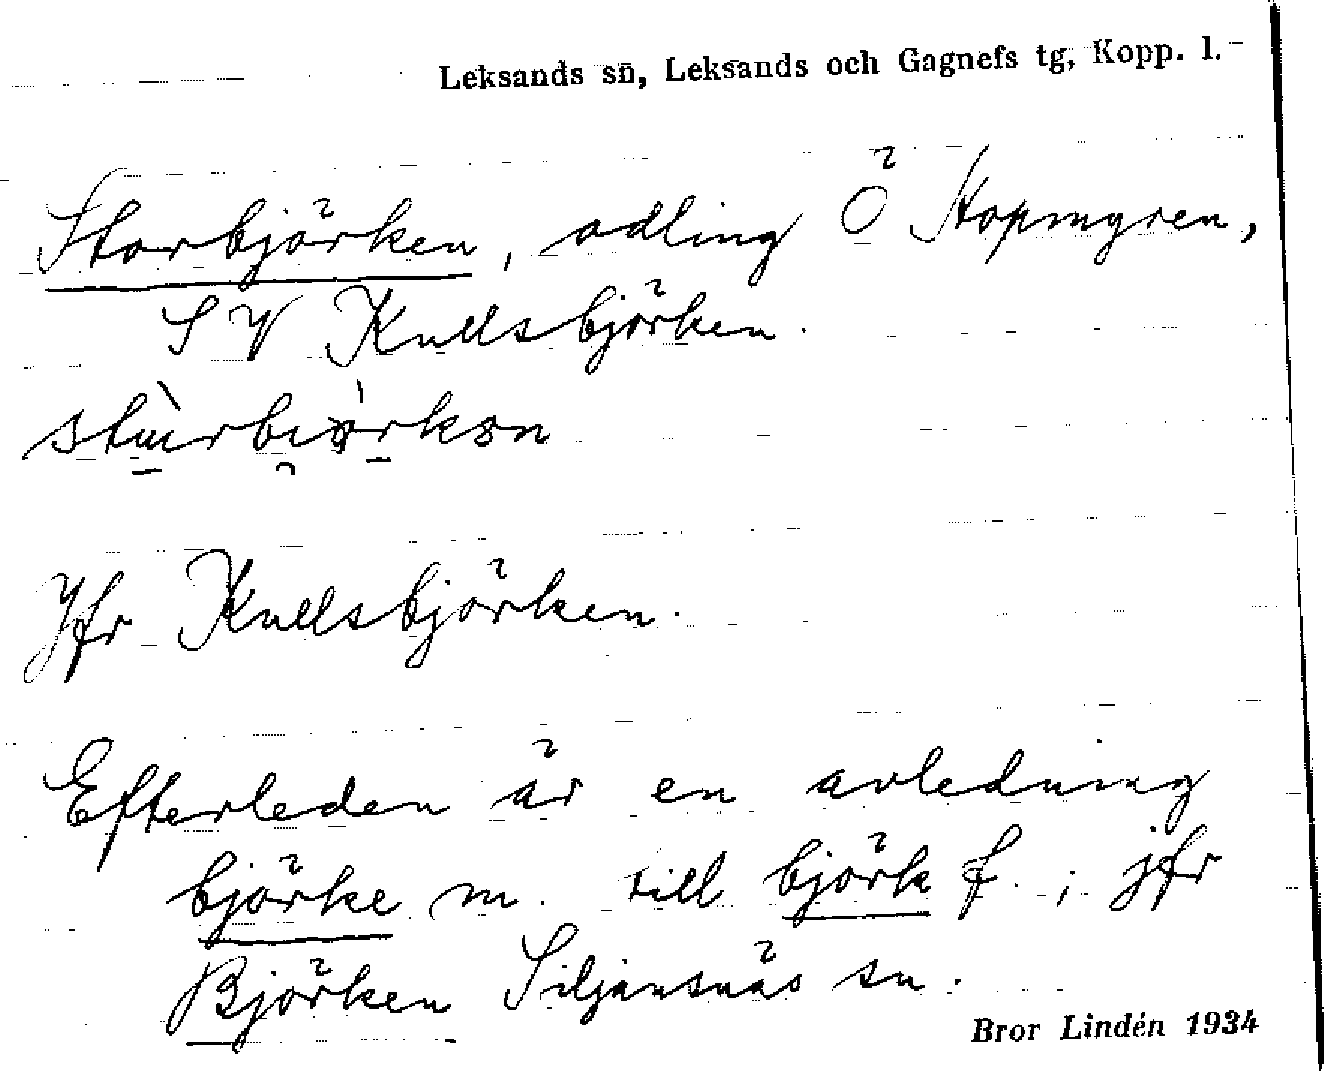 Leksands sn, Leksands och Gagnefs tg, Kopp. l.
Storbjörken, odling Ö Hopmyren,
SV Kullsbjörken.
Jfr Kullsbjörken.
Efterleden är en avledning
björke m. till björk f.; jfr
Björken Siljansnäs sn.
Bror Lindén 1934